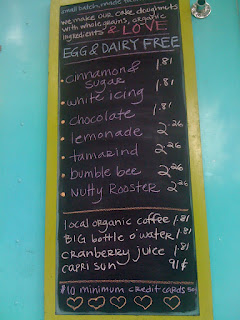 small batch, made
we make our cake doughnuts
with whole grains, organic
ingredients & LOVE
EGG & DAIRY FREE
• cinnamon & sugar 1.81
• white icing 1.81
• chocolate 1.81
• lemonade 2.26
• tamarind 2.26
• bumble bee 2.26
• Nutty Rooster 2.26
local organic coffee 1.81
BIG bottle o' water 1.81
cranberry juice 1.81
capri sun 91¢
$10 minimum credit cards